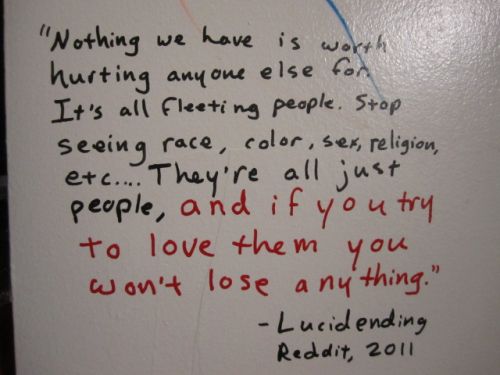 "Nothing we have is worth
hurting anyone else for.
It's all fleeting people. Stop
seeing race, color, sex, religion,
etc.... They're all just
people, and if you try
to love them you
won't lose anything."
- Lucidending
Reddit, 2011